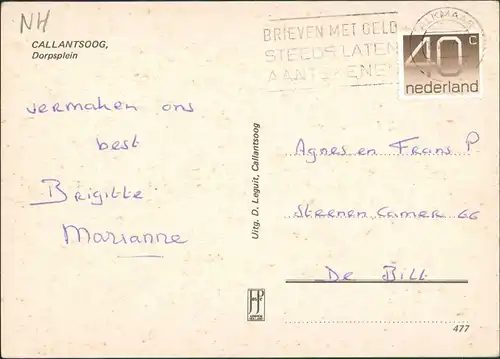 NH
CALLANTSOOG,
Dorpsplein
BRIEVEN MET GELD
STEEDS LATEN
AANTEKENEN
ALKMAAR
40 c
nederland
vermaken ons
best
Brigitte
Marianne
Uitg. D. Leguit, Callantsoog
Agnes en Frans P
Steenen Camer 66
De Bilt
477